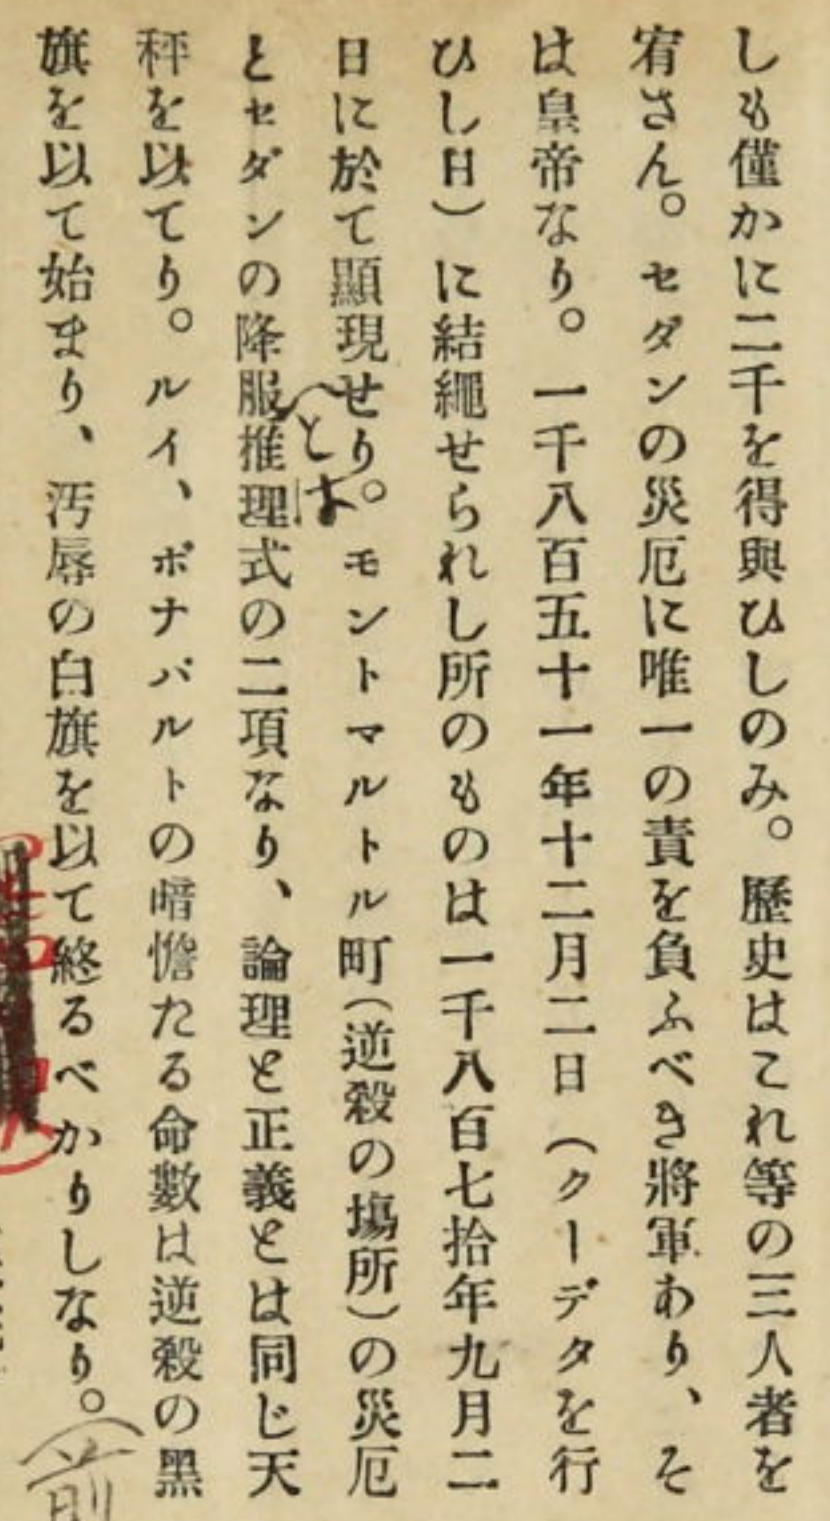 しも僅かに二千を得與ひしのみ。歷史はこれ等の三人者を
宥さん。セダンの災厄に唯一の責を負ふべき將軍あり、そ
は皇帝なり。一千八百五十一年十二月二日（クーデタを行
ひし日）に結繩せられし所のものは一千八百七拾年九月二
日に於て顯現せり。モントマルトル町（逆殺の塲所）の災厄
とセダンの降服推理式の二項なり、論理と正義とは同じ天
とは
秤を以てり。ルイ、ボナパルトの暗憺たる命數は逆殺の黑
旗を以て始まり、汚辱の白旗を以て終るべかりしなり。
前